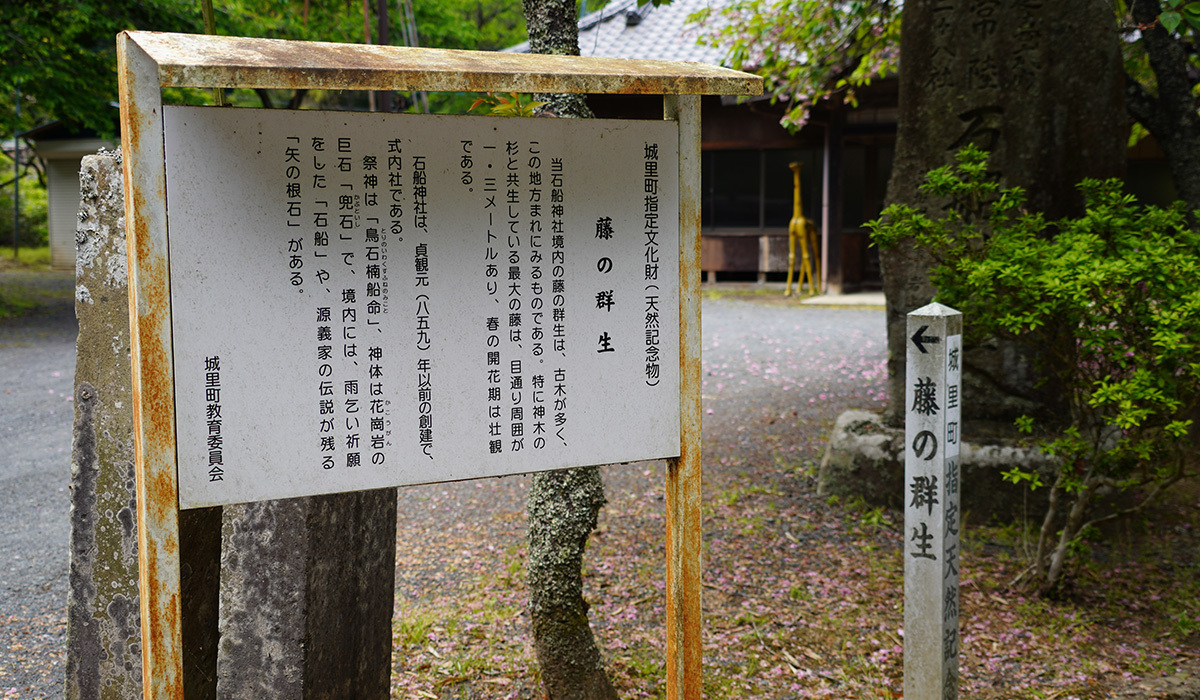 城里町指定文化財（天然記念物）
藤の群生
当石船神社境内の藤の群生は、古木が多く、
この地方まれにみるものである。特に神木の
杉と共生している最大の藤は、目通り周囲が
一・三メートルあり、春の開花期は壮観
である。
石船神社は、貞観元（八五九）年以前の創建で、
式内社である。
祭神は「鳥石楠船命」、神体は花崗岩の
とりのいわくすふねのみこと
かこうがん
巨石「兜石」で、境内には、雨乞い祈願
かぶといし
をした「石船」や、源義家の伝説が残る
「矢の根石」がある。
城里町教育委員会
常陸
二十八社
石
←
藤の群生
城里町指定天然記